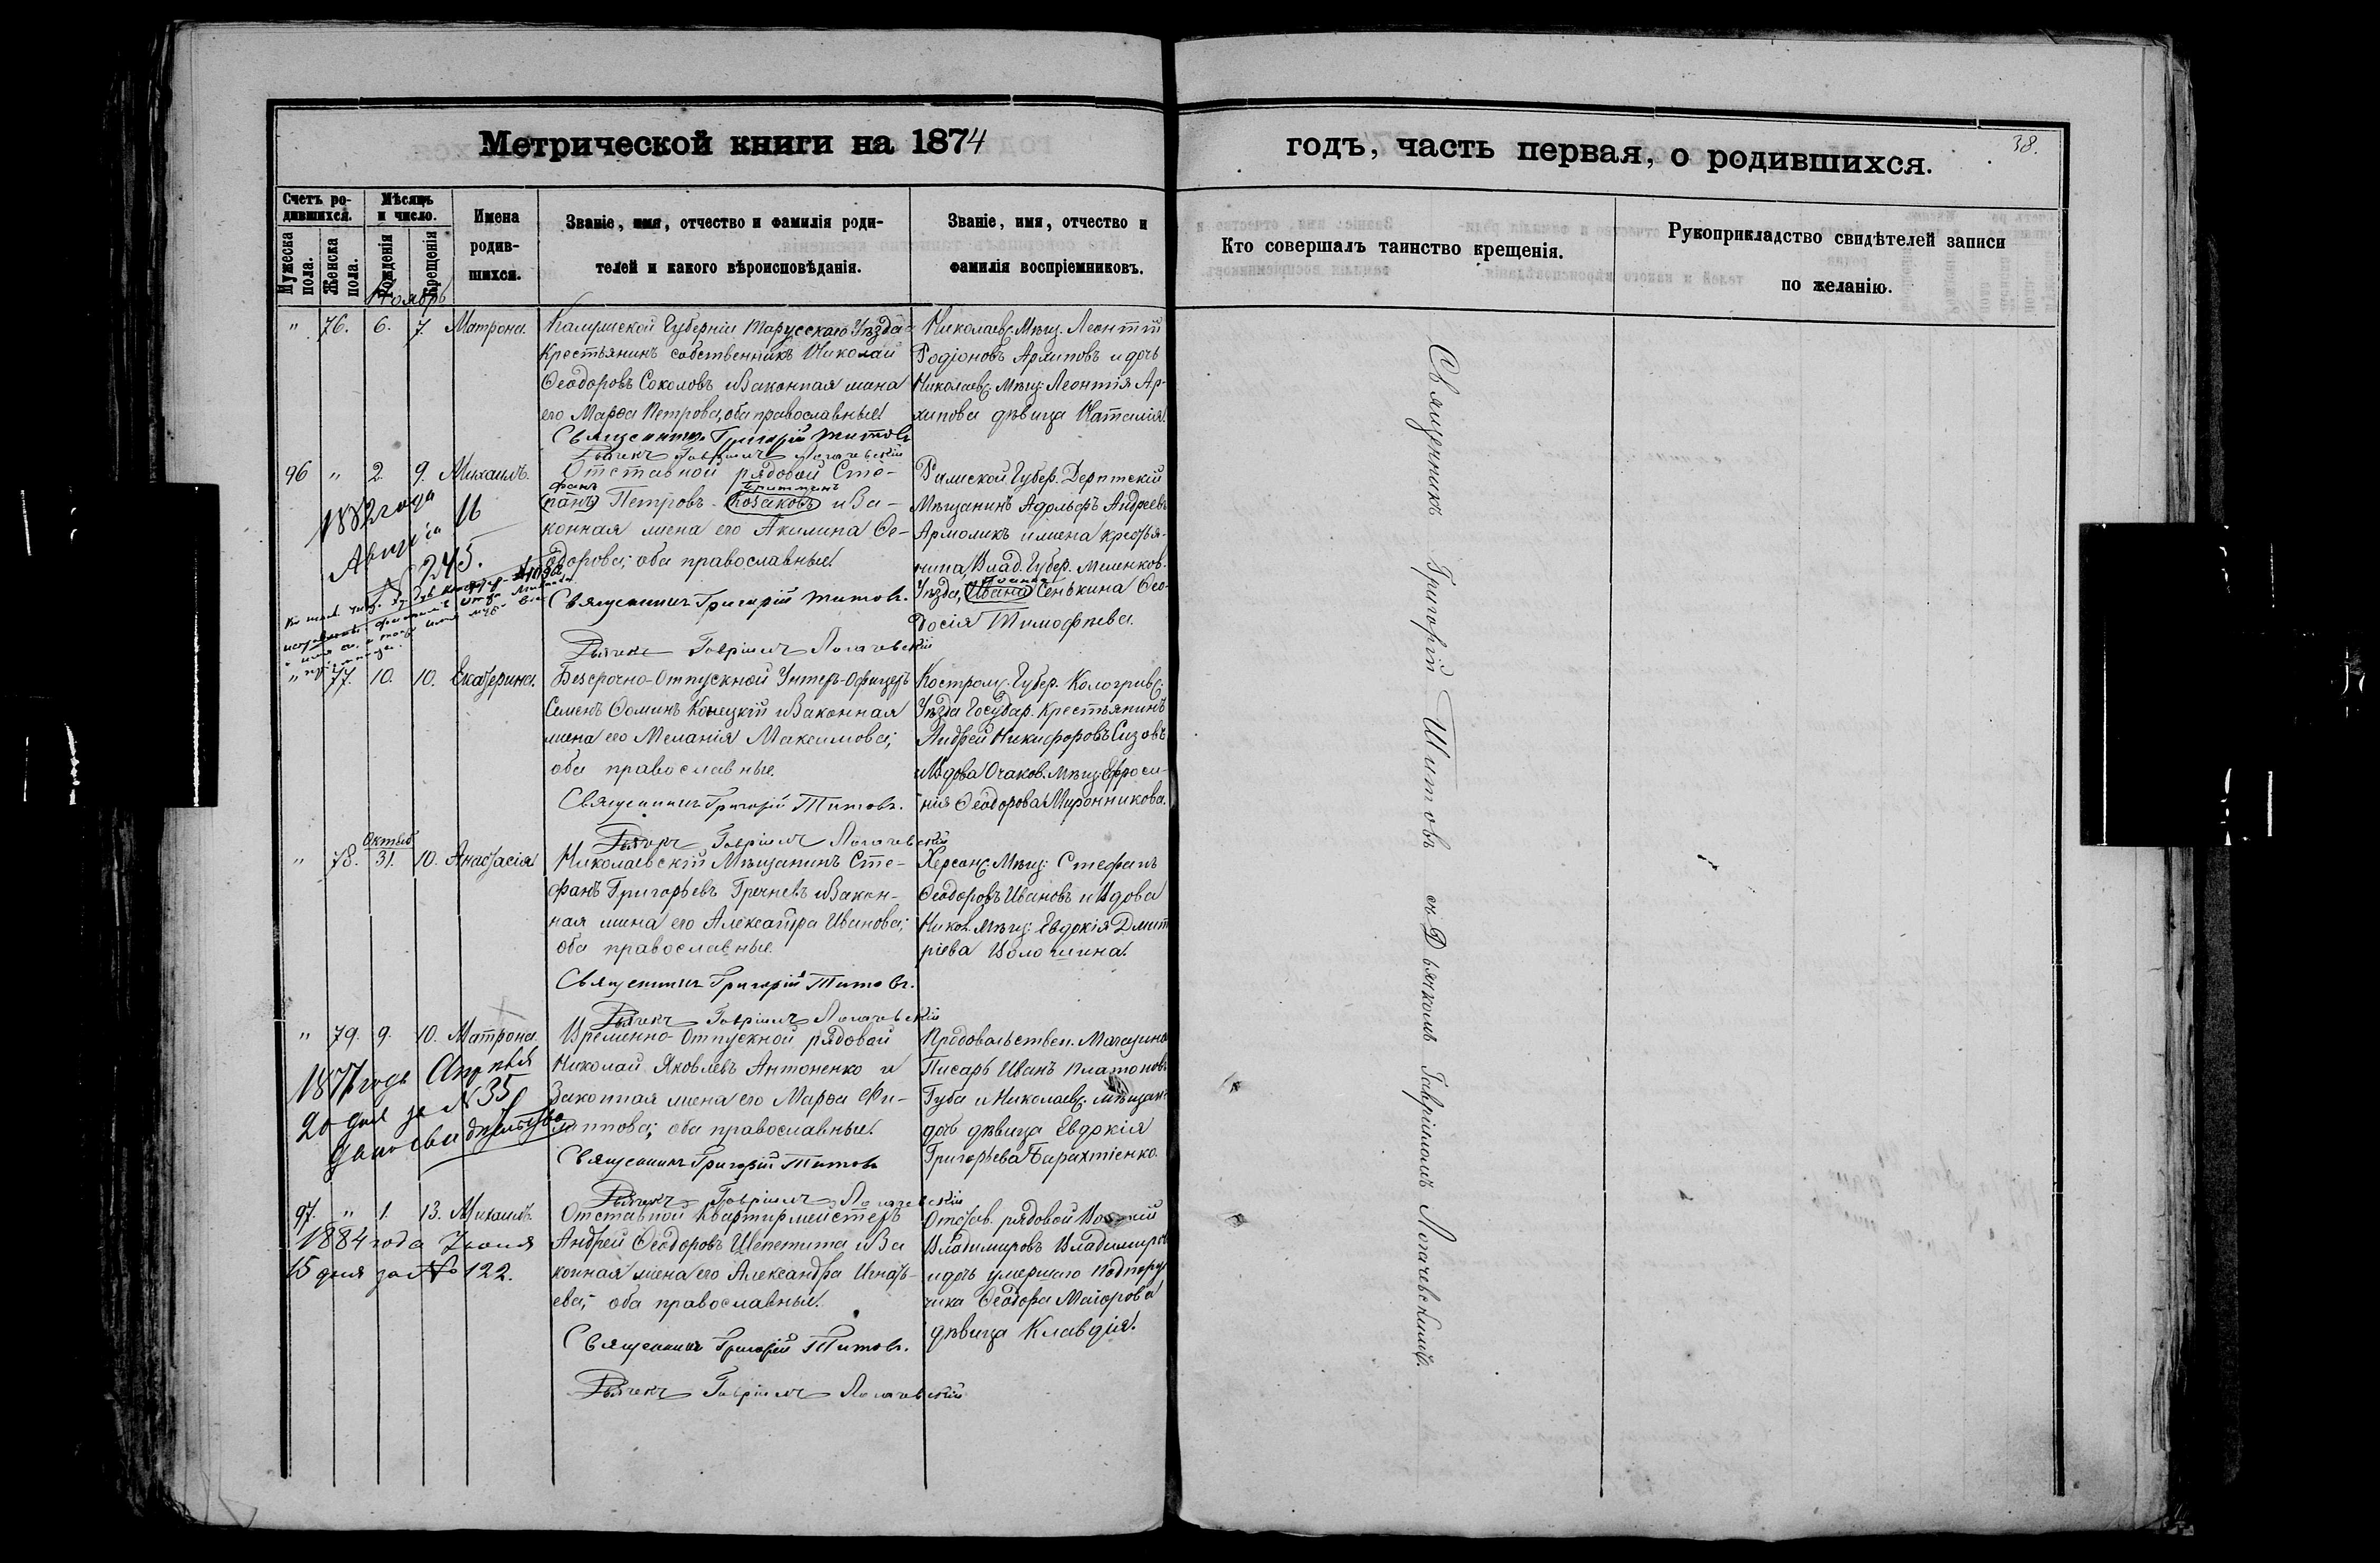 Метрической книги на 1874
годъ, часть первая, о родившихся.
38.
Счетъ родившихся.
Мужеска пола.
Женска пола.
Мѣсяцъ и число.
Рожденія
Крещенія
Имена родившихся.
Званіе, имя, отчество и фамилія родителей и какого вѣроисповѣданія.
Званіе, имя, отчество и фамилія воспріемниковъ.
Кто совершалъ таинство крещенія.
Рукоприкладство свидѣтелей записи по желанію.
Ноябрь
" 76. 6. 7. Матрона.
Калужской Губерніи Тарусскаго Уѣзда
Крестьянинъ собственникъ Николай
Ѳеодоровъ Соколовъ и Законная жена
его Марѳа Петрова, оба православные.
Священникъ Григорій Титовъ
Дьячекъ Гавріилъ Логачевскій
Николаев. Мѣщ. Леонтій
Родіоновъ Архиповъ и дочь
Николаев. Мѣщ. Леонтія Ар-
хипова дѣвица Наталія.
96 " 2. 9. Михаилъ.
1882 года
Августа 16
№ 245.
Отставной рядовой Сте-
фанъ
панъ Петровъ Козаковъ и За-
конная жена его Акилина Ѳе-
одорова; оба православные.
Священникъ Григорій Титовъ.
Дьячекъ Гавріилъ Логачевскій
Губер. Дерптскій
Мѣщанинъ Адольфъ Андреевъ
Армоликъ и жена крестья-
нина Влад. Губер. Меленков.
Уѣзда, Ивана Сенькина Ѳео-
досія Тимофеева.
" 77. 10. 10. Екатерина.
Безсрочно-Отпускной Унтеръ-Офицеръ
Семенъ Ѳоминъ Конецкій и Законная
жена его Меланія Максимова;
оба православные.
Священникъ Григорій Титовъ.
Дьячекъ Гавріилъ Логачевскій
Костром. Губер. Кологрив.
Уѣзда Государ. Крестьянинъ
Андрей Никифоровъ Сизовъ
и Вдова Очаков. Мѣщ. Ефроси-
нія Ѳеодорова Миронникова.
Октяб
" 78. 31. 10. Анастасія
Николаевскій Мѣщанинъ Сте-
фанъ Григорьевъ Гречневъ и Закон-
ная жена его Александра Иванова;
оба православные.
Священникъ Григорій Титовъ.
Дьячекъ Гавріилъ Логачевскій
Херсон. Мѣщ. Стефанъ
Ѳеодоровъ Ивановъ и Вдова
Никол. Мѣщ. Евдокія Дмит
ріева Волошина.
" 79. 9. 10. Матрона.
1877 годъ Апрѣля
20 дня за № 35
дано свидѣтельство
Временно-Отпускной рядовой
Николай Яковлевъ Антоненко и
Законная жена его Марѳа Фи-
липпова; оба православные.
Священникъ Григорій Титовъ
Дьячекъ Гавріилъ Логачевскій
Продовольствен. Магазина
Писарь Иванъ Платоновъ
Губа и Николаев. мѣщан.
дочь дѣвица Евдокія
Григорьева Барахтіенко.
97. " 1. 13. Михаилъ.
1884 года Іюня
15 дня за № 122.
Отставной Квартирмейстеръ
Андрей Ѳеодоровъ Шепетита и За
конная жена его Александра Игнать-
ева; оба православные.
Священникъ Григорій Титовъ.
Дьячекъ Гавріилъ Логачевскій
Отстав. рядовой
Владимировъ Владимиров
и дочь умершаго Подпору
чика Ѳеодора Маіорова
дѣвица Клавдія.
Священникъ Григорій Титовъ съ Дьячкомъ Гавріиломъ Логачевскимъ.